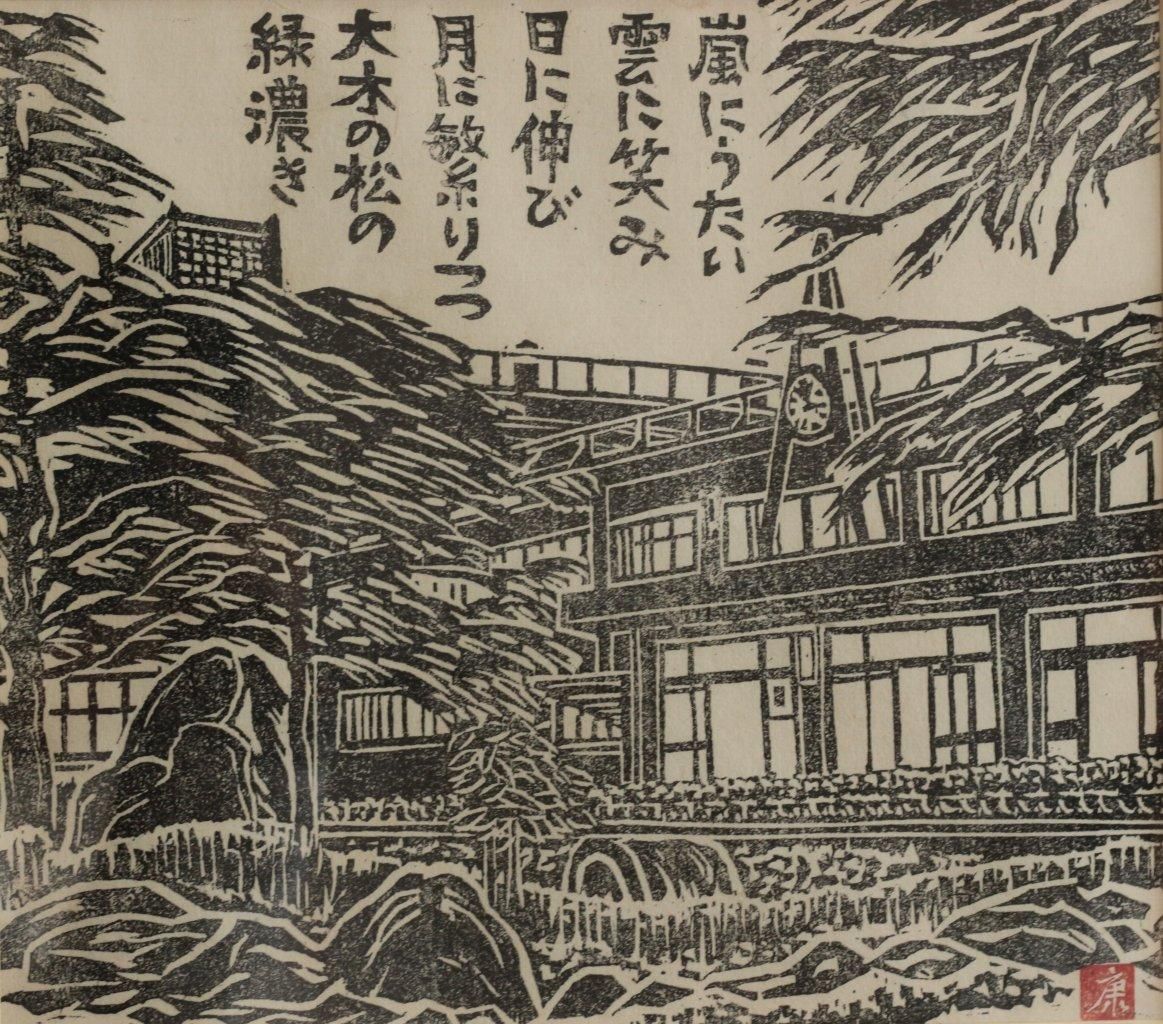 嵐にうたい
雲に笑み
日に伸び
月に繁りつつ
大木の松の
緑濃き
康